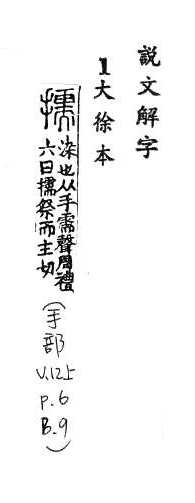 説文解字
1大徐本
擩
染也从手需聲周禮
六曰擩祭而主切
(手部
V.12上
p.6
B.9)